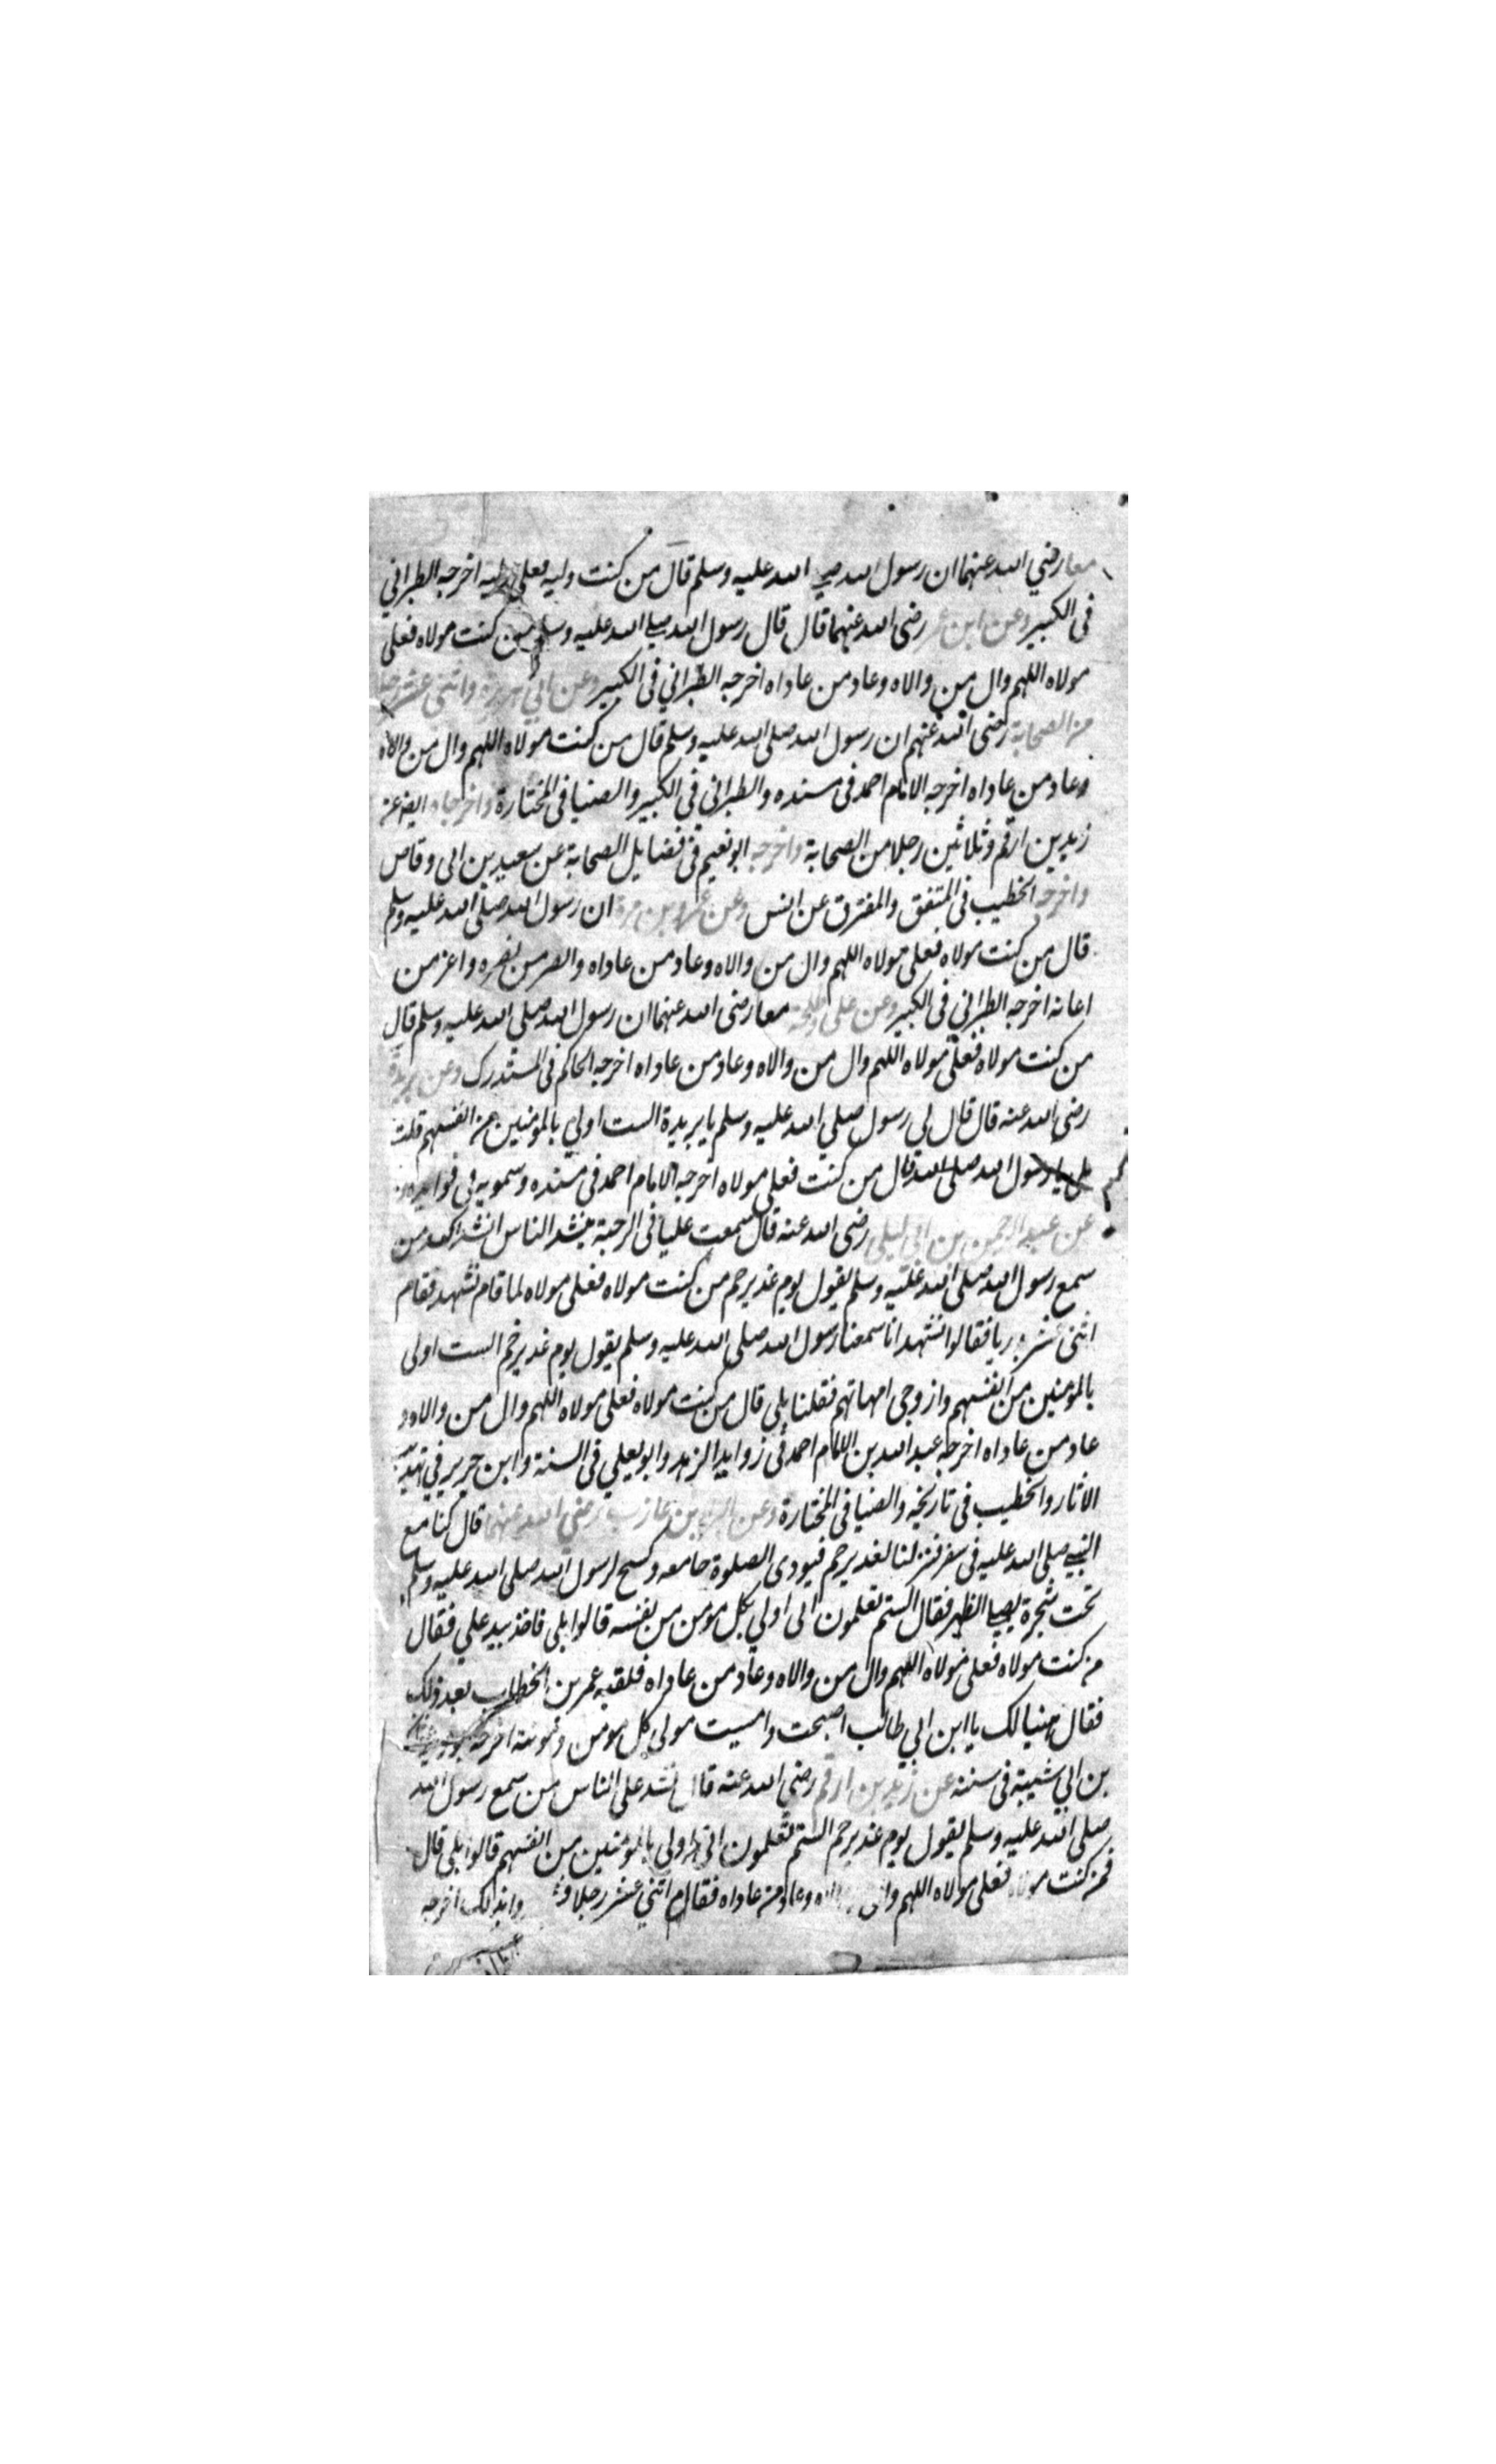 معا رضي الله عنهما ان رسول الله صلي الله عليه وسلم قال من كنت وليه فعلي وليه اخرجه الطبراني
في الكبير وعن ابن عمر رضي الله عنهما قال قال رسول الله صلي الله عليه وسلم من كنت مولاه فعلي
مولاه اللهم وال من والاه وعاد من عاداه اخرجه الطبراني في الكبير وعن ابي هريرة واثني عشر رجلا
من الصحابة رضي الله عنهم ان رسول الله صلى الله عليه وسلم قال من كنت مولاه اللهم وال من والاه
وعاد من عاداه اخرجه الامام احمد في مسنده والطبراني في الكبير والضيا في المختارة واخرجاه ايضا عن
زيد بن ارقم وثلاثين رجلا من الصحابة واخرجه ابو نعيم في فضايل الصحابة عن سعيد بن ابي وقاص
واخرجه الخطيب في المتفق والمفترق عن انس وعن عمرو بن مرة ان رسول الله صلى الله عليه وسلم
قال من كنت مولاه فعلي مولاه اللهم وال من والاه وعاد من عاداه وانصر من نصره واعن من
اعانه اخرجه الطبراني في الكبير وعن علي وطلحة معا رضي الله عنهما ان رسول الله صلي الله عليه وسلم قال
من كنت مولاه فعلي مولاه اللهم وال من والاه وعاد من عاداه اخرجه الحاكم في المستدرك وعن بريدة
رضي الله عنه قال قال لي رسول صلي الله عليه وسلم يا بريدة الست اولي بالمؤمنين من انفسهم قلت
بلى يا رسول الله صلى الله قال من كنت فعلي مولاه اخرجه الامام احمد في مسنده وسمويه في فوايده
عن عبد الرحمن بن ابي ليلى رضي الله عنه قال سمعت عليا في الرحبة ينشد الناس انشد الله من
سمع رسول الله صلى الله عليه وسلم يقول يوم غدير خم من كنت مولاه فعلي مولاه لما قام فشهد فقام
اثنى عشر بدريا فقالوا نشهد انا سمعنا رسول الله صلى الله عليه وسلم يقول يوم غدير خم الست اولى
بالمؤمنين من انفسهم وازوجي امهاتهم فقلنا بلي قال من كنت مولاه فعلي مولاه اللهم وال من والاه و
عاد من عاداه اخرجه عبد الله بن الامام احمد في زوايد الزهد وابو يعلي في السنة وابن جرير في تهذيب
الاثار والخطيب في تاريخه والضيا في المختارة وعن البرا بن عازب رضي الله عنهما قال كنا مع
النبي صلى الله عليه في سفر فنزلنا بغدير خم فنودى الصلوة جامعه وكسح لرسول الله صلى الله عليه وسلم
تحت شجرة يصلي الظهر فقال الستم تعلمون اني اولي بكل مومن من نفسه قالوا بلى فاخذ بيد علي فقال
من كنت مولاه فعلي مولاه اللهم وال من والاه وعاد من عاداه فلقيه عمر بن الخطاب بعد ذلك
فقال هنيا لك يا ابن ابي طالب اصبحت وامسيت مولى كل مومن ومومنة اخرجه
بن ابي شيبة في سننه عن زيد بن ارقم رضي الله عنه قال نشد علي الناس من سمع رسول الله
صلى الله عليه وسلم يقول يوم غدير خم الستم تعلمون اني اولى بالمؤمنين من انفسهم قالوا بلى قال
فمن كنت مولاه فعلي مولاه اللهم وال من والاه وعاد من عاداه فقام اثني عشر رجلا بذلك اخرجه